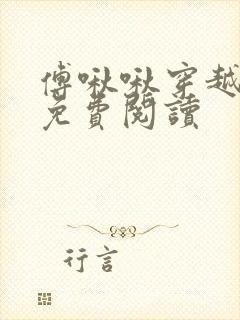 傅啾啾穿越
免費閱讀
行言